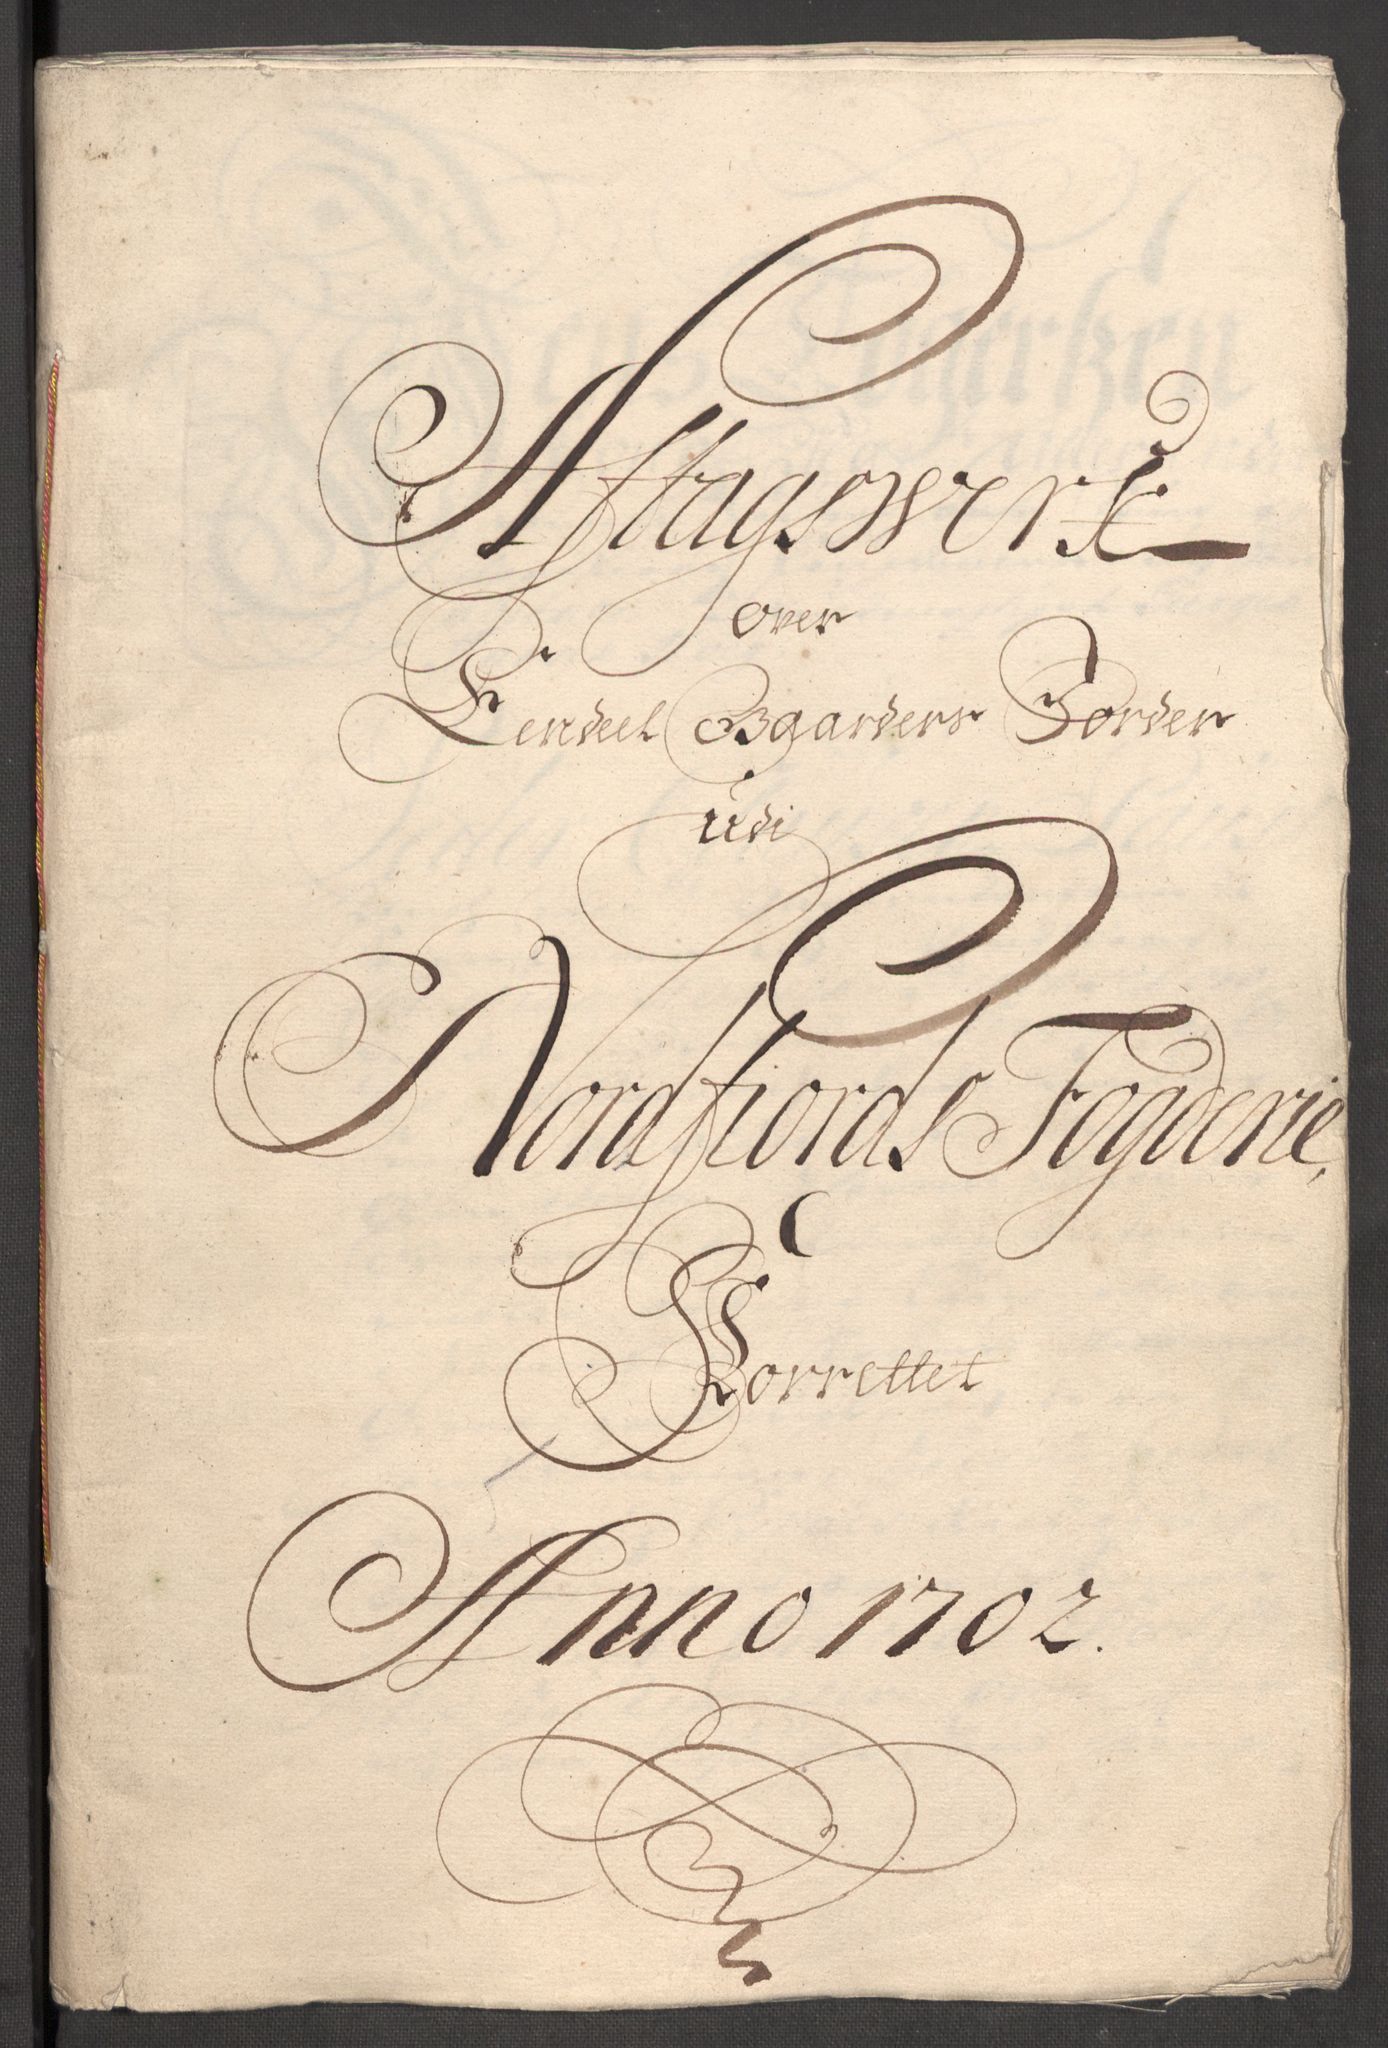 Aftagswerk
over
Eendeel Ggarders Jorder
udi
Nordfiords Fogderie,
Forrettet
Anno 1702.